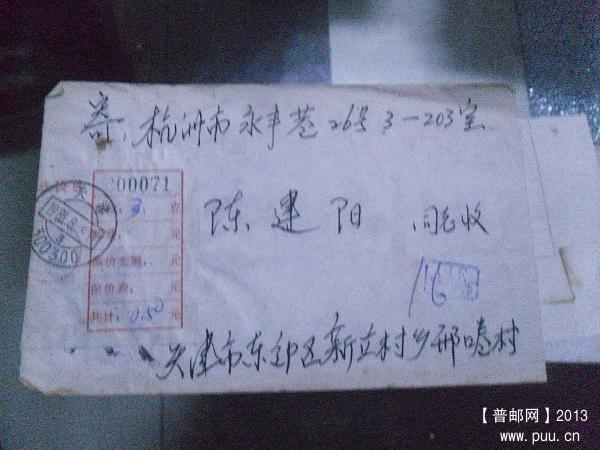 寄：杭州市永丰巷26号3-203室
200071
3. 克
元
保价金额：元
保价费：元
共计：0.50 元
陈建阳 同志收
16
300300
天津市东郊区新立村乡邢 村
【普邮网】2013
www.puu.cn